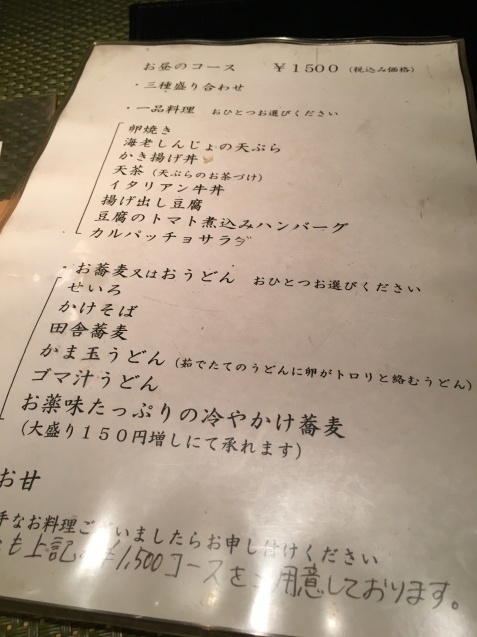 お昼のコース ￥１５００（税込み価格）
・三種盛り合わせ
・一品料理 おひとつお選びください
卵焼き
海老しんじょの天ぷら
かき揚げ丼
天茶（天ぷらのお茶づけ）
イタリアン牛丼
揚げ出し豆腐
豆腐のトマト煮込みハンバーグ
カルパッチョサラダ
・お蕎麦又はおうどん おひとつお選びください
せいろ
かけそば
田舎蕎麦
かま玉うどん（茹でたてのうどんに卵がトロリと絡むうどん）
ゴマ汁うどん
お薬味たっぷりの冷やかけ蕎麦
（大盛り１５０円増しにて承れます）
お甘
手なお料理ございましたらお申し付けください
も上記の￥1,500コースをご用意しております。